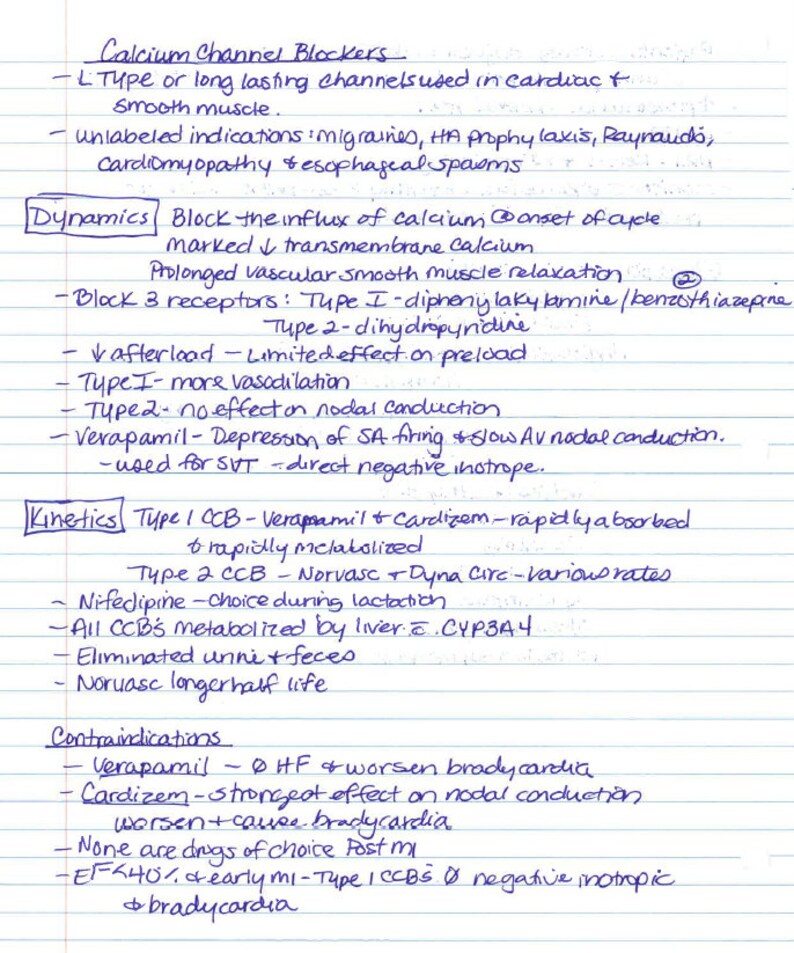 Calcium Channel Blockers
- L TYPE or long lasting channels used in cardiac +
smooth muscle.
- unlabeled indications: migraines, HA prophylaxis, Raynauds,
cardiomyopathy + esophageal spasms
Dynamics Block the influx of calcium @ onset of cycle
marked ↓ transmembrane calcium
Prolonged vascular smooth muscle relaxation
②
- Block 3 receptors: Type I - diphenylakylamine/benzothiazepine
Type 2 - dihydropyridine
- ↓ afterload - Limited effect on preload
- Type I - more vasodilation
- Type 2 - no effect on nodal conduction
- Verapamil - Depression of SA firing + slow AV nodal conduction.
- used for SVT - direct negative inotrope.
Kinetics Type 1 CCB - Verapamil + Cardizem - rapidly absorbed
+ rapidly metabolized
Type 2 CCB - Norvasc + Dyna Circ - various rates
~ Nifedipine - choice during lactation
- All CCB's metabolized by liver c̄ CYP3A4
- Eliminated urine + feces
- Norvasc longer half life
Contraindications
- Verapamil - Ø HF + worsen bradycardia
- Cardizem - strongest effect on nodal conduction
worsen + cause bradycardia
- None are drugs of choice Post MI
- EF<40% + early MI - Type 1 CCB's Ø negative inotropic
+ bradycardia